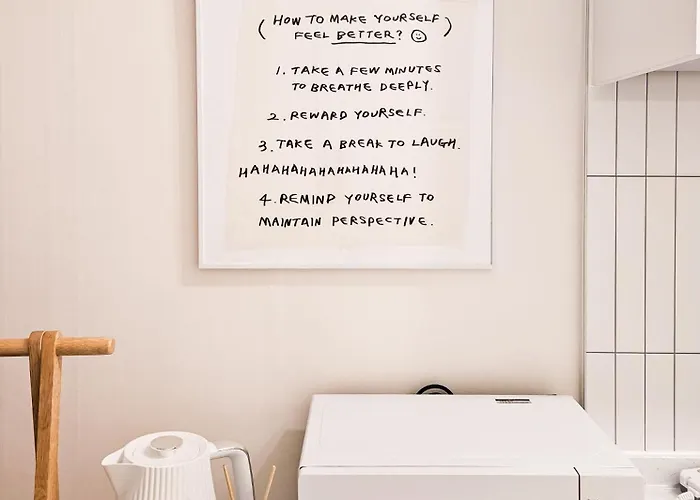 (HOW TO MAKE YOURSELF
FEEL BETTER? ☺)
1. TAKE A FEW MINUTES
TO BREATHE DEEPLY.
2. REWARD YOURSELF.
3. TAKE A BREAK TO LAUGH.
HAHAHAHAHAHAHAHAHA!
4. REMIND YOURSELF TO
MAINTAIN PERSPECTIVE.